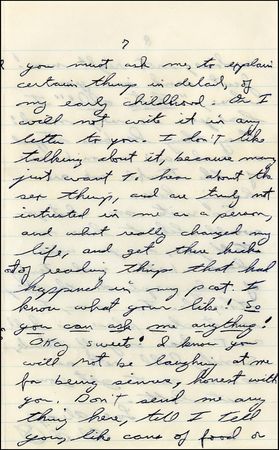 7
you must ask me, to explain
certain things in detail, of
my early childhood. Or I
will not write it in any
letter to you. I don't like
talking about it, because many
just want to hear about the
sex things, and are truly not
intrested in me as a person
and what really changed my
life, and get there kicks
out of reading things that had
happened in my past. I
know what your like! So
you can ask me anything!
Okay sweets! I know you
will not be laughing at me
for being sincere, honest with
you. Don't send me any
thing here, till I tell
you, like cans of food or